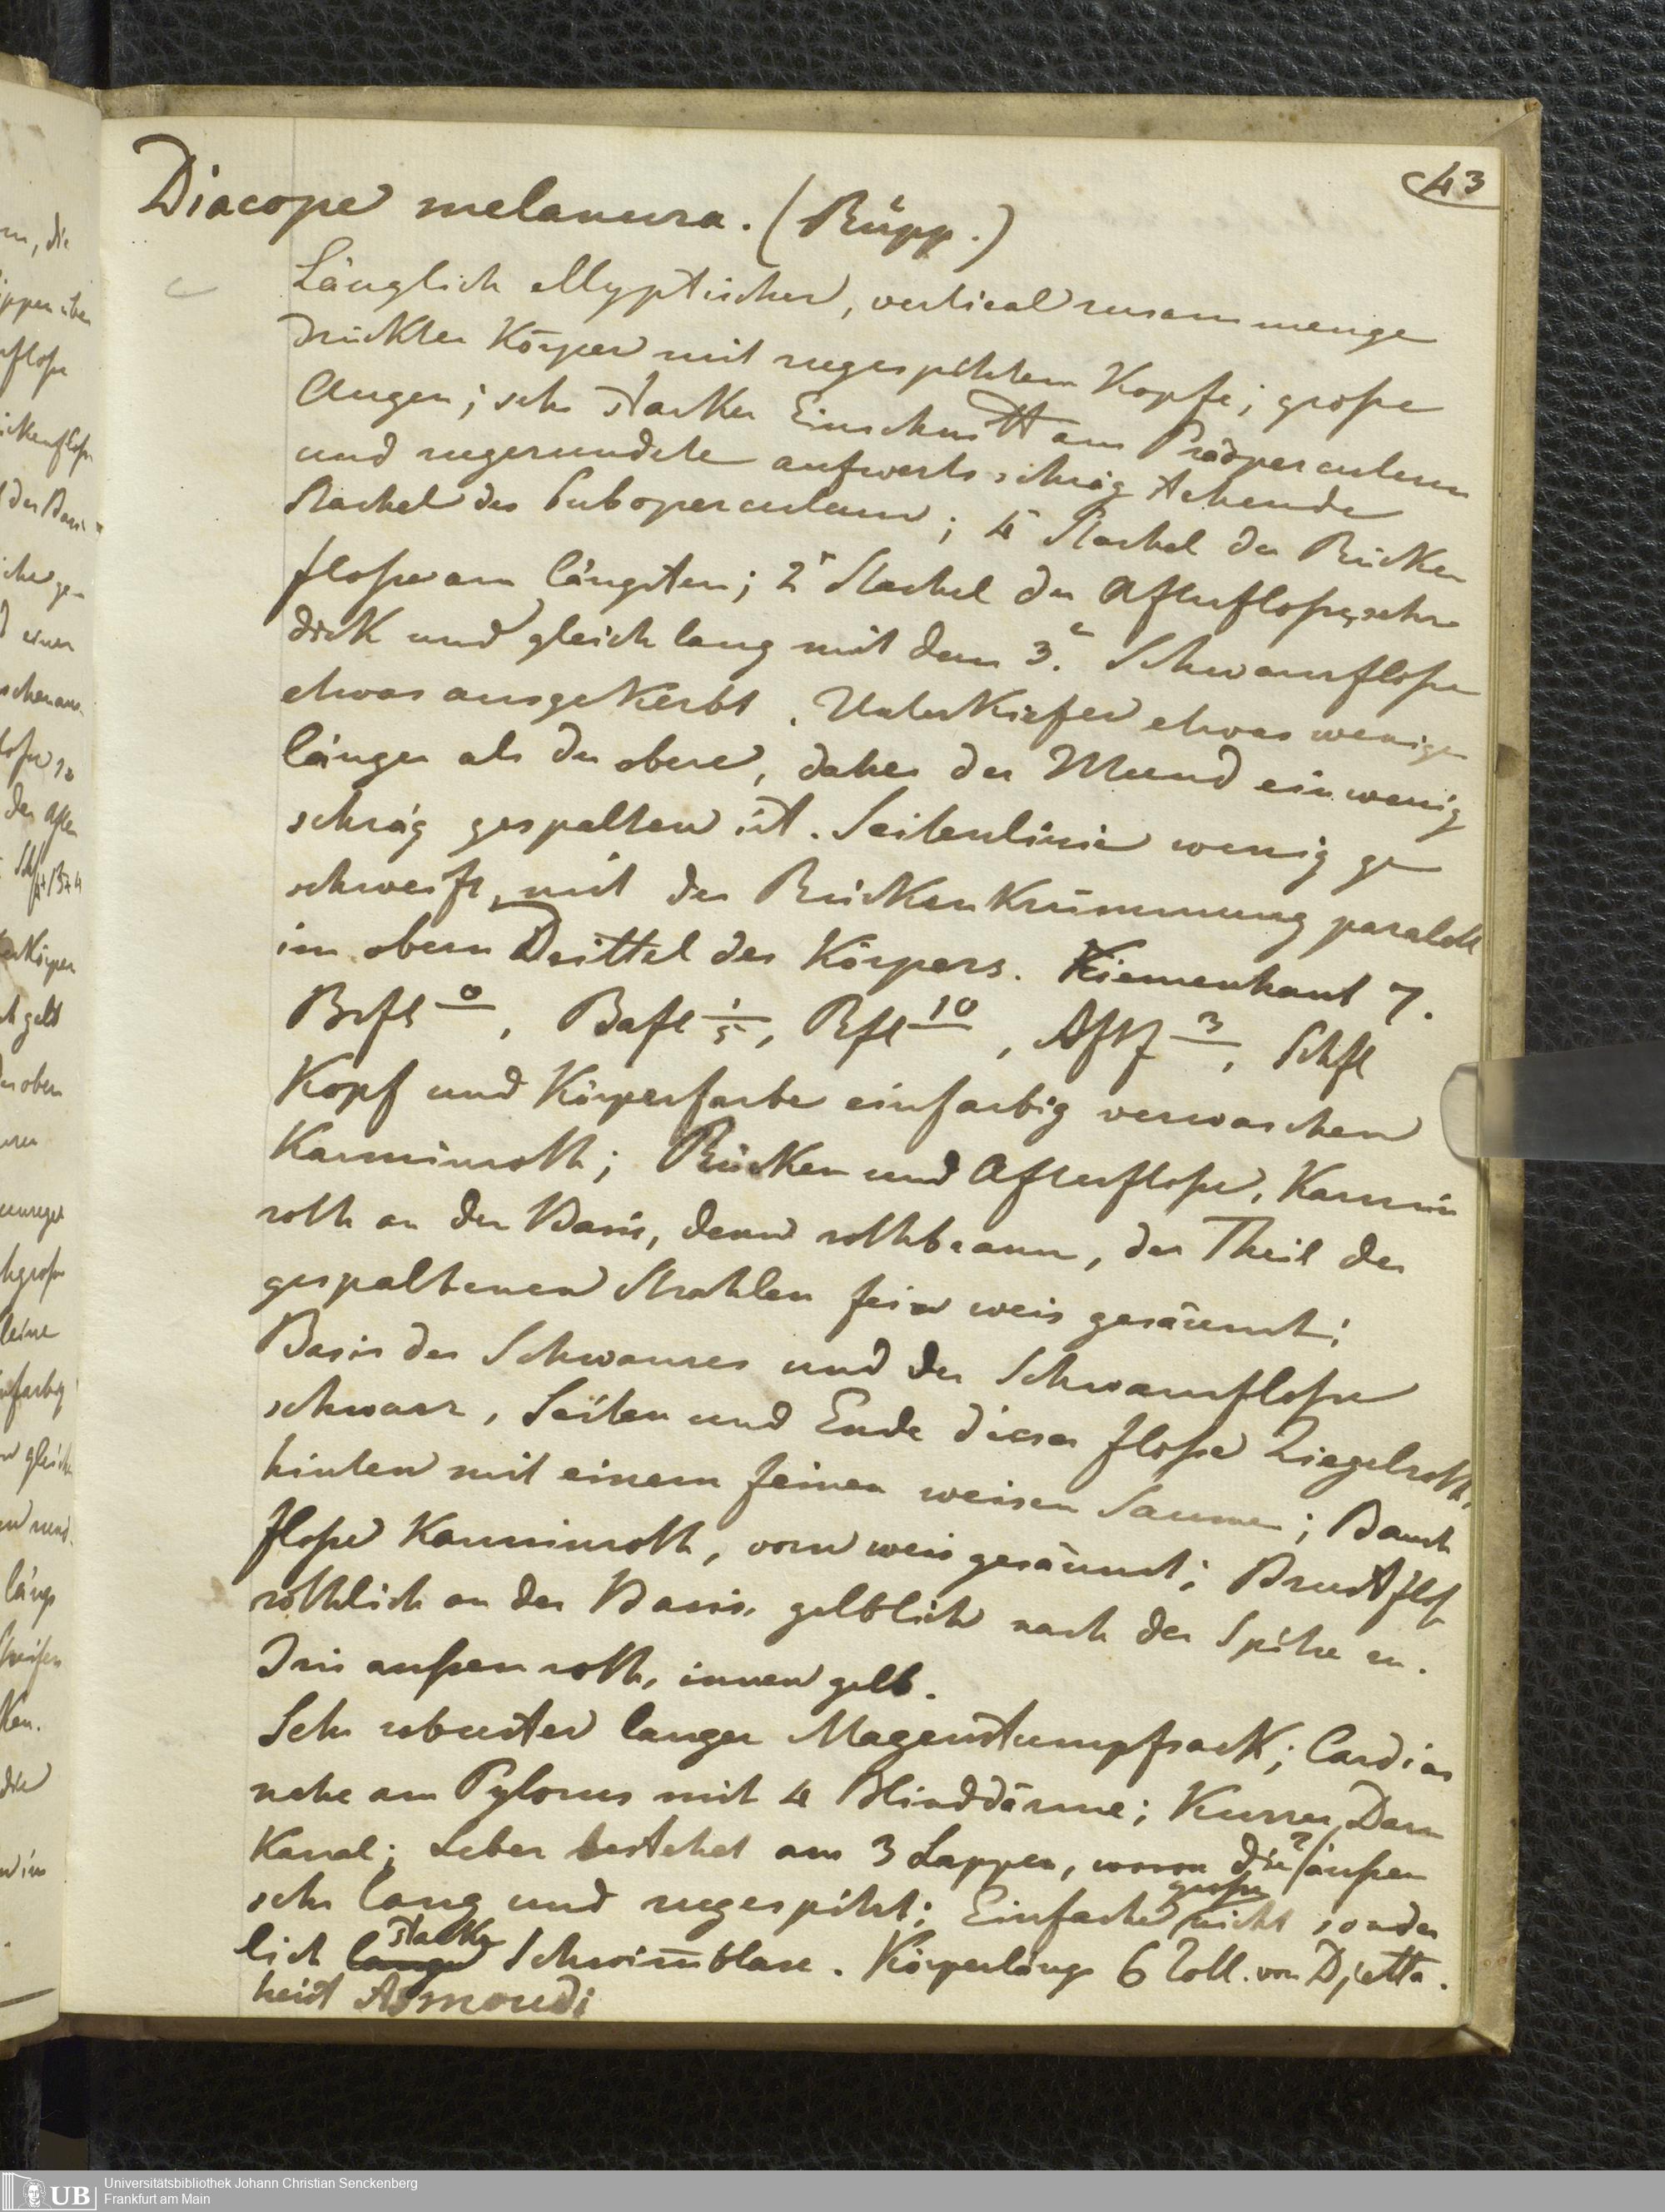 43
Diacope melanura. (Rüpp.)
Länglich ellyptischer, vertical zusammenge
drückter Körper mit zugespitztem Kopfe; große
Augen; sehr starker Einschnitt am Präoperculum
und zugerundete aufwerts schräg stehende
Stachel des Suboperculum; 4r Stachel der Rücken
floße am längsten; 2r Stachel der Afterfloße, sehr
dick und gleich lang mit dem 3.n Schwanzfloße
etwas ausgekerbt. Unterkiefer etwas weniger
länger als der obere, daher der Mund ein wenig
schräg gespalten ist. Seitenlinie wenig ge
schweift, mit der Rückenkrümmung paralell
im obern Drittel des Körpers. Kiemenhaut 7.
Brfl 0/, Bafl 1/5, Rfl 10/, Aftf 3/, Schfl
Kopf und Körperfarbe einfarbig verwaschen
Karminroth; Rücken und Afterfloße, Karmin
roth an der Basis, denn rothbraun, der Theil der
gespaltenen Strahlen fein weis gesäumt;
Basis des Schwanzes und der Schwanzfloße
schwarz, Seiten und Ende dieser Floße Ziegelroth,
hinten mit einem feinen weisen Saume; Bauch
floße Karminroth, vorn weis gesäumt; Brustfloß
röthlich an der Basis, gelblich nach der Spitze zu.
Iris außen roth, innen gelb.
Sehr robuster langer Magenstumpfsack; Cardias
nahe am Pylorus mit 4 Blinddärme; Kurzer Darm
Kanal; Leber bestehet aus 3 Lappen, wovon die 2 äußern
sehr lang und zugespitzt; Einfache große nicht sonder
lich lange starke Schwimblase. Körperlänge 6 Zoll. von Djetta.
heist Asmoudi
Universitätsbibliothek Johann Christian Senckenberg
Frankfurt am Main
UB